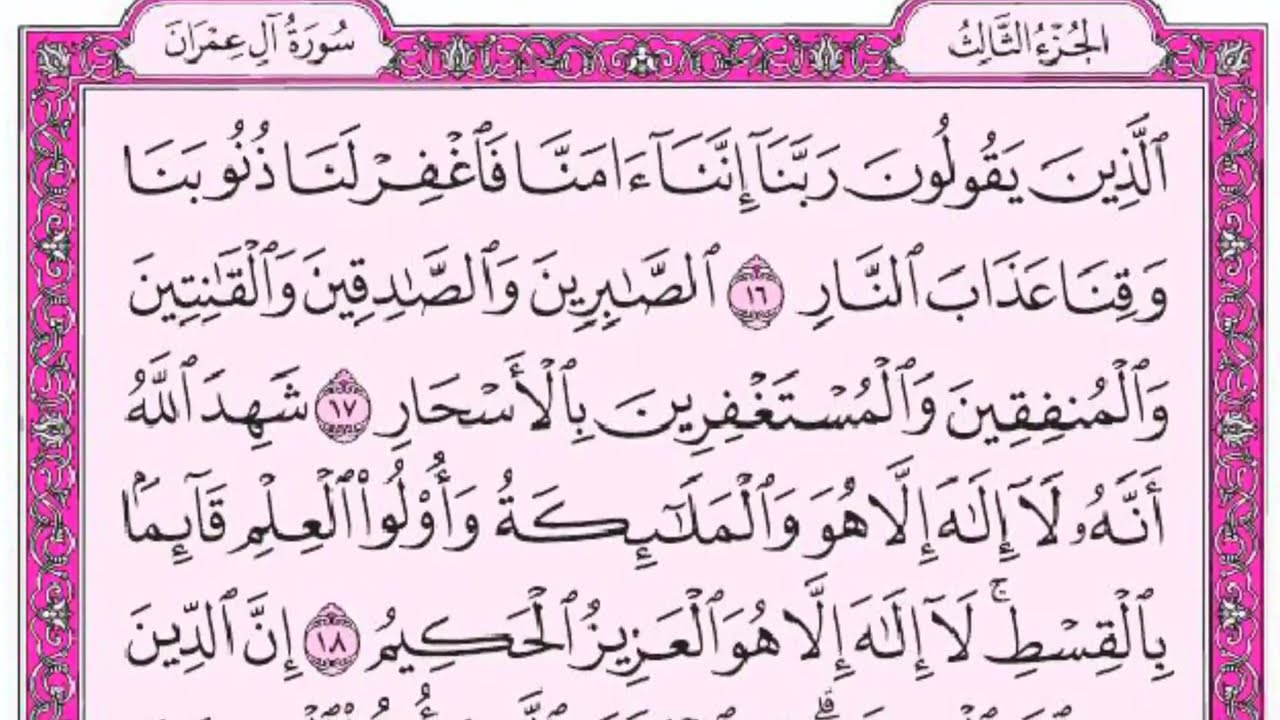 الجُزْءُ الثَّالِثُ
سُورَةُ آلِ عِمْرَانَ
ٱلَّذِينَ يَقُولُونَ رَبَّنَآ إِنَّنَآ ءَامَنَّا فَٱغْفِرْ لَنَا ذُنُوبَنَا
وَقِنَا عَذَابَ ٱلنَّارِ ١٦ ٱلصَّٰبِرِينَ وَٱلصَّٰدِقِينَ وَٱلْقَٰنِتِينَ
وَٱلْمُنفِقِينَ وَٱلْمُسْتَغْفِرِينَ بِٱلْأَسْحَارِ ١٧ شَهِدَ ٱللَّهُ
أَنَّهُۥ لَآ إِلَٰهَ إِلَّا هُوَ وَٱلْمَلَٰٓئِكَةُ وَأُو۟لُوا۟ ٱلْعِلْمِ قَآئِمَۢا
بِٱلْقِسْطِ ۚ لَآ إِلَٰهَ إِلَّا هُوَ ٱلْعَزِيزُ ٱلْحَكِيمُ ١٨ إِنَّ ٱلدِّينَ